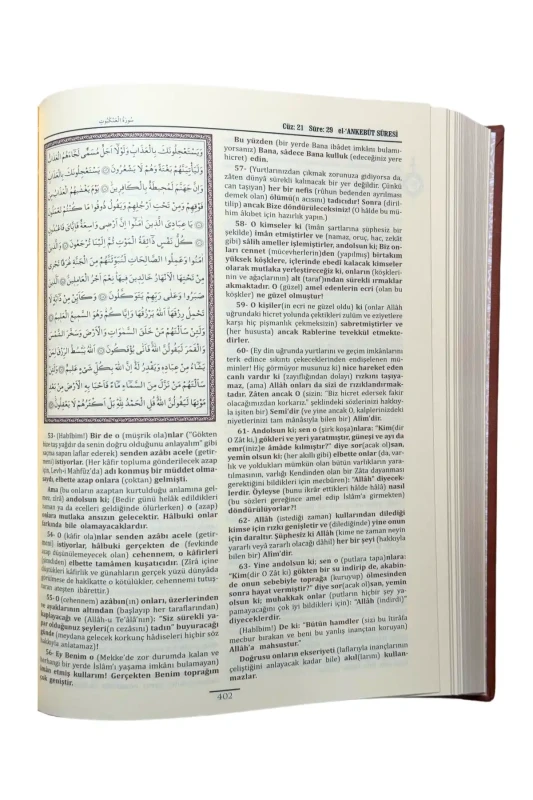 سُورَةُ الْعَنْكَبُوتِ
Cüz: 21 Sûre: 29 el-'ANKEBÛT SÛRESİ
وَيَسْتَعْجِلُونَكَ بِالْعَذَابِ وَلَوْلَا أَجَلٌ مُسَمًّى لَجَاءَهُمُ الْعَذَابُ
وَلَيَأْتِيَنَّهُمْ بَغْتَةً وَهُمْ لَا يَشْعُرُونَ يَسْتَعْجِلُونَكَ بِالْعَذَابِ
وَإِنَّ جَهَنَّمَ لَمُحِيطَةٌ بِالْكَافِرِينَ يَوْمَ يَغْشَاهُمُ الْعَذَابُ مِنْ
فَوْقِهِمْ وَمِنْ تَحْتِ أَرْجُلِهِمْ وَيَقُولُ ذُوقُوا مَا كُنْتُمْ تَعْمَلُونَ
يَا عِبَادِيَ الَّذِينَ آمَنُوا إِنَّ أَرْضِي وَاسِعَةٌ فَإِيَّايَ فَاعْبُدُونِ
كُلُّ نَفْسٍ ذَائِقَةُ الْمَوْتِ ثُمَّ إِلَيْنَا تُرْجَعُونَ وَالَّذِينَ
آمَنُوا وَعَمِلُوا الصَّالِحَاتِ لَنُبَوِّئَنَّهُمْ مِنَ الْجَنَّةِ غُرَفًا تَجْرِي
مِنْ تَحْتِهَا الْأَنْهَارُ خَالِدِينَ فِيهَا نِعْمَ أَجْرُ الْعَامِلِينَ الَّذِينَ
صَبَرُوا وَعَلَى رَبِّهِمْ يَتَوَكَّلُونَ وَكَأَيِّنْ مِنْ دَابَّةٍ لَا
تَحْمِلُ رِزْقَهَا اللَّهُ يَرْزُقُهَا وَإِيَّاكُمْ وَهُوَ السَّمِيعُ الْعَلِيمُ
وَلَئِنْ سَأَلْتَهُمْ مَنْ خَلَقَ السَّمَاوَاتِ وَالْأَرْضَ وَسَخَّرَ الشَّمْسَ
وَالْقَمَرَ لَيَقُولُنَّ اللَّهُ فَأَنَّى يُؤْفَكُونَ اللَّهُ يَبْسُطُ الرِّزْقَ لِمَنْ
يَشَاءُ مِنْ عِبَادِهِ وَيَقْدِرُ لَهُ إِنَّ اللَّهَ بِكُلِّ شَيْءٍ عَلِيمٌ وَلَئِنْ
سَأَلْتَهُمْ مَنْ نَزَّلَ مِنَ السَّمَاءِ مَاءً فَأَحْيَا بِهِ الْأَرْضَ مِنْ بَعْدِ
مَوْتِهَا لَيَقُولُنَّ اللَّهُ قُلِ الْحَمْدُ لِلَّهِ بَلْ أَكْثَرُهُمْ لَا يَعْقِلُونَ
53- (Habîbim!) Bir de o (müşrik ola)nlar "Gökten
üstümüze taş yağdır da senin doğru olduğunu anlayalım" gibi
uçuca sapan laflar ederek) senden azâbı acele (getir-
meni) istiyorlar. (Her kâfir topluma gönderilecek azap
için, Levh-i Mahfûz'da) adı konmuş bir müddet olma-
saydı, elbette azap onlara (çoktan) gelmişti.
Ama (bu onların azaptan kurtulduğu anlamına gel-
mez, zîrâ) andolsun ki; (Bedir günü helâk edildikleri
zaman ya da ecelleri geldiğinde ölürlerken) o (azap)
onlara mutlaka ansızın gelecektir. Hâlbuki onlar
farkında bile olamayacaklardır.
54- O (kâfir ola)nlar senden azâbı acele (getir-
meni) istiyorlar, hâlbuki gerçekten de (fevkinde
azap düşünülemeyecek olan) cehennem, o kâfirleri
(şuradan) elbette tamâmen kuşatıcıdır. (Zîrâ içine
düştükleri kâfirlik ve günahların gerçek yüzü dünyâda
görünmese de hakîkatte o kötülükler, cehennemi tutuş-
turan ateşten ibârettir.)
55- O (cehennem) azâbın(ın) onları, üzerlerinden
ve ayaklarının altından (başlayıp her taraflarından)
kaplayacağı ve (Allâh-u Te'âlâ'nın): "Siz sürekli ya-
par olduğunuz şeyleri(n cezâsını) tadın" buyuracağı
günde (meydana gelecek korkunç hâdiseleri hiçbir söz
hakkıyla anlatamaz)!
56- Ey Benim o (Mekke'de zor durumda kalan ve
herhangi bir yerde İslâm'ı yaşama imkânı bulamayan)
îmân etmiş kullarım! Gerçekten Benim toprağım
çok geniştir.
Bu yüzden (bir yerde Bana ibâdet imkânı bulamı-
yorsanız) Bana, sâdece Bana kulluk (edeceğiniz yere
hicret) edin.
57- (Yurtlarınızdan çıkmak zorunuza gidiyorsa da,
zâten dünyâ sürekli kalınacak bir yer değildir. Çünkü
can taşıyan) her bir nefis (rûhun bedenden ayrılması
demek olan) ölümü(n acısını) tadıcıdır! Sonra (diril-
tilip) ancak Bize döndürüleceksiniz! (O hâlde bu mü-
him âkıbet için hazırlık yapın.)
58- O kimseler ki (îmân şartlarına şüphesiz bir
şekilde) îmân etmiştirler ve (namaz, oruç, hac, zekât
gibi) sâlih ameller işlemiştirler, andolsun ki; Biz on-
ları cennet (mücevherlerin)den (yapılmış) birtakım
yüksek köşklere, içlerinde ebedî kalacak kimseler
olarak mutlaka yerleştireceğiz ki, onların (köşkleri-
nin ve ağaçlarının) alt (taraf)ından sürekli ırmaklar
akmaktadır. O (güzel) amel edenlerin ecri (olan bu
köşkler) ne güzel olmuştur!
59- O kişiler(in ecri ne güzel oldu) ki (onlar Allâh
uğrundaki hicret yolunda çektikleri zulüm ve eziyetlere
karşı hiç pişmanlık çekmeksizin) sabretmiştirler ve
(her hususta) ancak Rablerine tevekkül etmekte-
dirler.
60- (Ey din uğrunda yurtlarını ve geçim imkânlarını
terk edince sıkıntı çekeceklerinden endişelenen mü-
minler! Hiç görmüyor musunuz ki) nice hareket eden
canlı vardır ki (zayıflığından dolayı) rızkını taşıya-
maz, (ama) Allâh onları da sizi de rızıklandırmak-
tadır. Zâten ancak O (sizin: "Biz hicret edersek fakir
olacağımızdan korkarız." şeklindeki sözlerinizi hakkıy-
la işiten bir) Semî'dir (ve yine ancak O, kalplerinizdeki
niyetlerinizi tam mânâsıyla bilen bir) Alîm'dir.
61- Andolsun ki; sen o (şirk koşa)nlara: "Kim(dir
O Zât ki,) gökleri ve yeri yaratmıştır, güneşi ve ayı da
emr(iniz)e âmâde kılmıştır?" diye sor(acak ol)san,
yemin olsun ki; (her akıllı gibi) elbette onlar (da, var-
lık ve yoklukları mümkün olan bütün varlıkların yara-
tılmasının, varlığı Kendinden olan bir Zâta dayanması
gerektiğini bildikleri için mecbûren): "Allâh" diyecek-
lerdir. Öyleyse (bunu ikrâr ettikleri hâlde hâlâ) nasıl
(bu sözleri gereğince amel edip İslâm'a girmekten)
döndürülüyorlar?!
62- Allâh (istediği zaman) kullarından dilediği
kimse için rızkı genişletir ve (dilediğinde) yine onun
için daraltır. Şüphesiz ki Allâh (kime ne zaman neyin
yararlı veyâ zararlı olacağı dâhil) her bir şeyi (hakkıyla
bilen bir) Alîm'dir.
63- Yine andolsun ki; sen o (putlara tapa)nlara:
"Kim(dir O Zât ki,) gökten bir su indirip de, akabin-
de onun sebebiyle toprağa (kuruyup) ölmesinden
sonra hayat vermiştir?" diye sor(acak ol)san, yemin
olsun ki; muhakkak onlar (putların hiçbir şey ya-
pamayacağını çok iyi bildikleri için): "Allâh (indirdi)"
diyeceklerdir.
(Habîbim!) De ki: "Bütün hamdler (sizi bu îtirâfa
mecbur bırakan ve beni bu yanlış inançtan koruyan)
Allâh'a mahsustur."
Doğrusu onların ekseriyeti (laflarıyla inançlarının
çeliştiğini anlayacak kadar bile) akıl(larını) kullan-
mazlar.
402